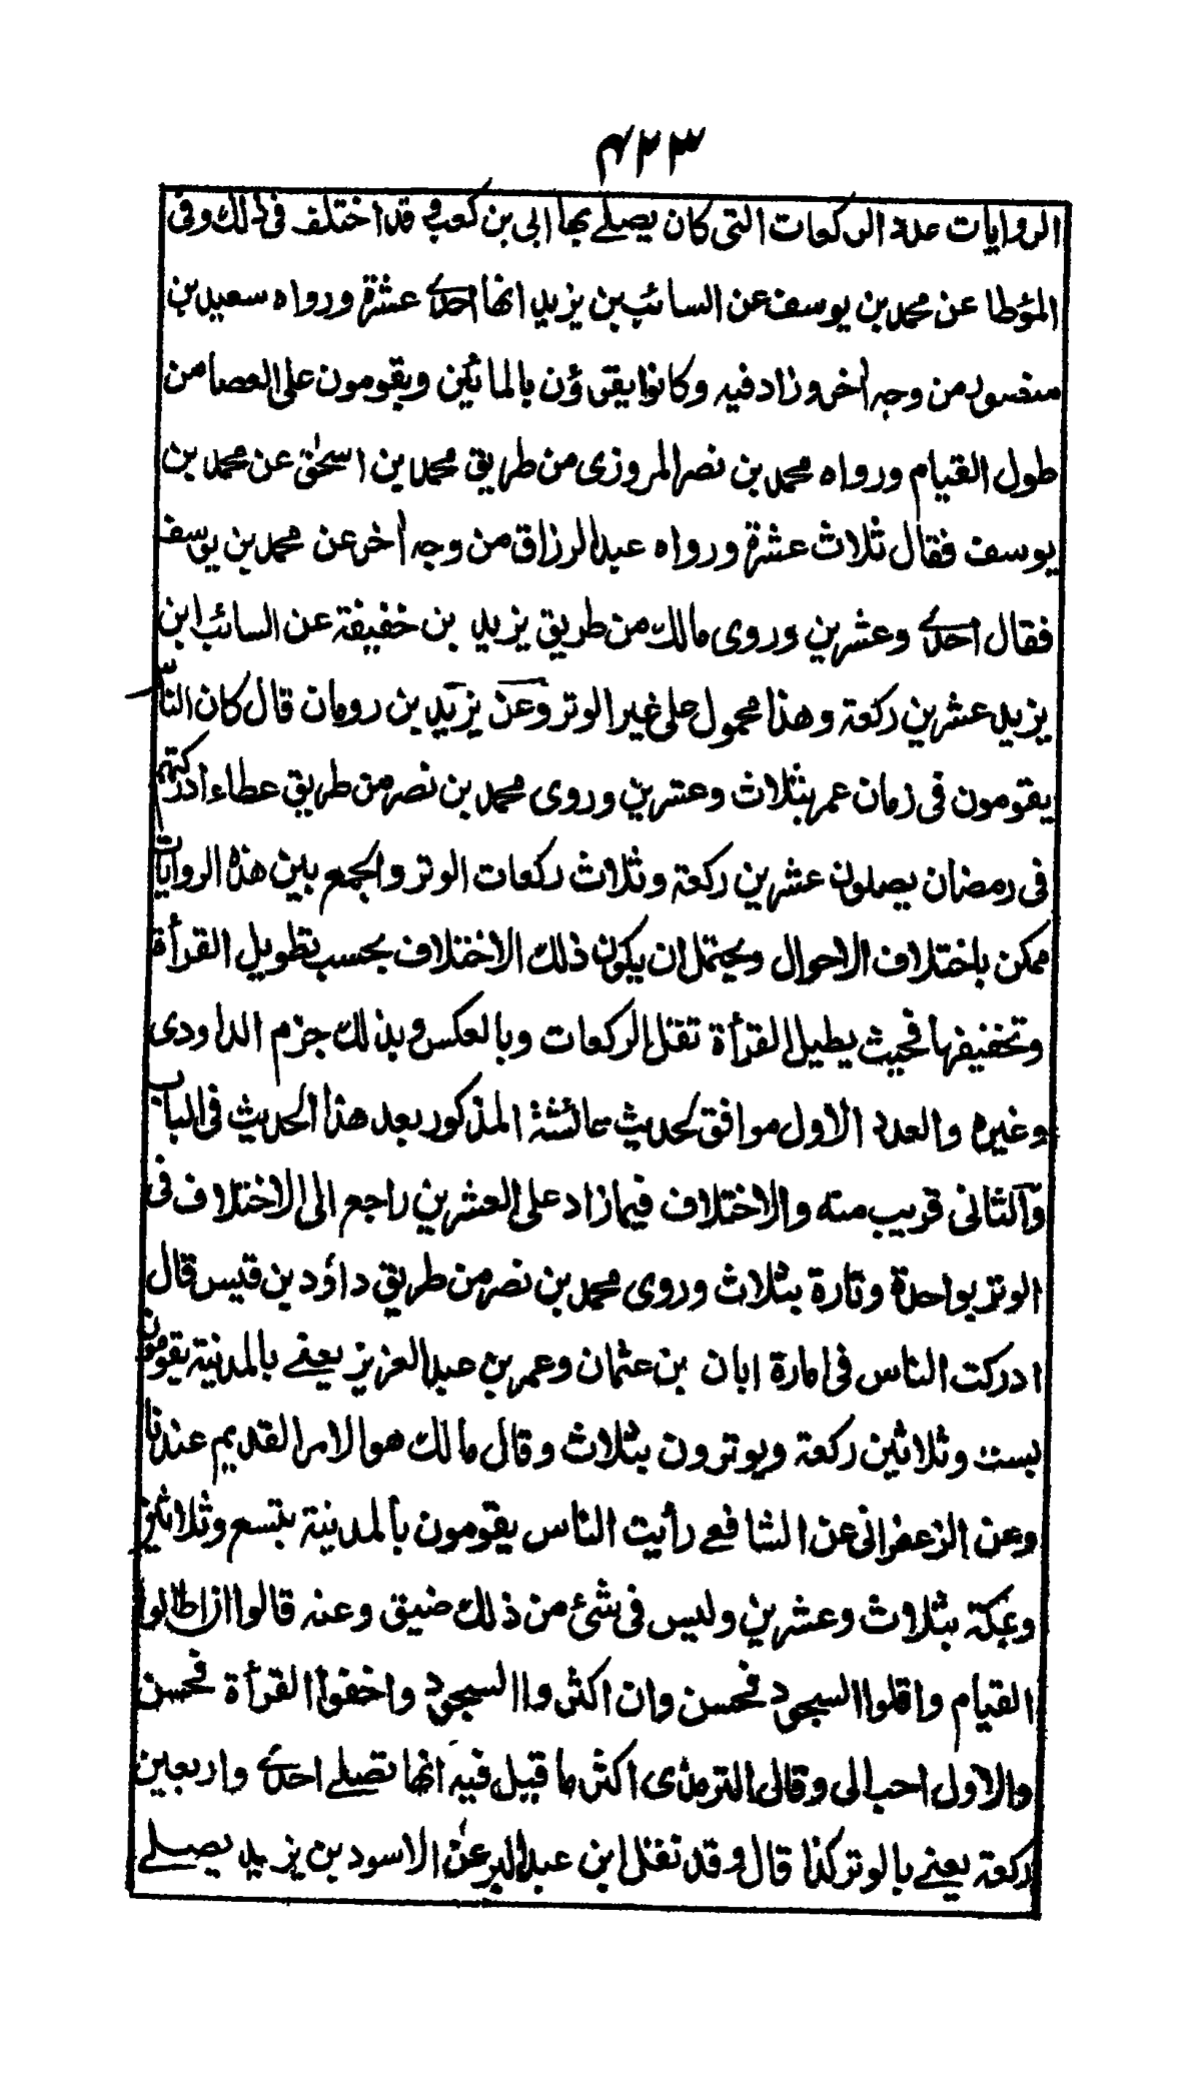 ۴۲۳
الروايات عدد الركعات التى كان يصلے بها ابى بن كعب و قد اختلف فى ذلك وفى
المؤطا عن محمد بن يوسف عن السائب بن يزيد انها احدے عشرة ورواه سعيد بن
منصور من وجه اٰخر وزاد فيه وكانوا يقرؤن بالمائين ويقومون على العصا من
طول القيام ورواه محمد بن نصر المروزى من طريق محمد بن اسحٰق عن محمد بن
يوسف فقال ثلاث عشرة ورواه عبد الرزاق من وجه اٰخر عن محمد بن يوسف
فقال احدے وعشرين وروى مالك من طريق يزيد بن خفيفة عن السائب ابن
يزيد عشرين ركعة وهذا محمول على غير الوتر وعن يزيد بن رومان قال كان الناس
يقومون فى زمان عمر بثلاث وعشرين وروى محمد بن نصر من طريق عطاء ادركتهم
فى رمضان يصلون عشرين ركعة وثلاث ركعات الوتر والجمع بين هذه الروايات
ممكن باختلاف الاحوال ويحتمل ان يكون ذلك الاختلاف بحسب تطويل القرأة
وتخفيفها فحيث يطيل القرأة تقل الركعات وبالعكس وبذلك جزم الداودى
وغيره والعدد الاول موافق لحديث عائشة المذكور بعد هذا الحديث فى الباب
والثانى قريب منه والاختلاف فيما زاد على العشرين راجع الى الاختلاف فى
الوتر بواحدة وتارة بثلاث وروى محمد بن نصر من طريق داؤد بن قيس قال
ادركت الناس فى امارة ابان بن عثمان وعمر بن عبد العزيز يعنے بالمدينة يقومون
بست وثلاثين ركعة ويوترون بثلاث وقال مالك هو الامر القديم عندنا
وعن الزعفرانى عن الشافعے رأيت الناس يقومون بالمدينة بتسع وثلاثين
وبمكة بثلاث وعشرين وليس فى شئ من ذلك ضيق وعنه قالوا ان اطالوا
القيام واقلوا السجود فحسن وان اكثروا السجود واخفوا القرأة فحسن
والاول احب الى وقال الترمذى اكثر ما قيل فيه انها تصلے احدے واربعين
ركعة يعنے بالوتر كذا قال وقد نقل ابن عبد البر عن الاسود بن يزيد يصلے